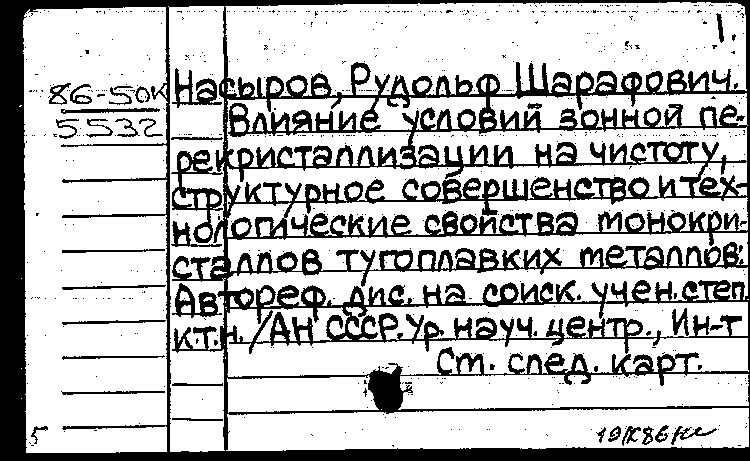 1.
86-50к
5532
Насыров, Рудольф Шарафович.
Влияние условий зонной пе-
рекристаллизации на чистоту,
структурное совершенство и тех-
нологические свойства монокри-
сталлов тугоплавких металлов:
Автореф. дис. на соиск. учен. степ.
к.т.н. /АН СССР. Ур. науч. центр., Ин-т
См. след. карт.
5